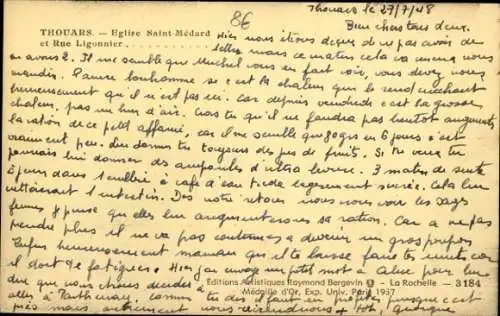 Thouars le 27/7/48
86
Bien chers tous deux.
THOUARS. — Eglise Saint-Médard
et Rue Ligonnier
Hier nous étions déçus de ne pas avoir de
lettre mais ce matin cela va mieux nous
en avons 2. Il me semble que Michel vous en fait voir, vous devez nous
maudire. Pauvre bonhomme si c'est la chaleur qui le rend méchant
heureusement qu'il n'est pas ici. Car depuis vendredi c'est la grosse
chaleur, pas un brin d'air. Crois tu qu'il ne faudra pas bientôt augmenter
la ration de ce petit affamé, car il me semble que 90 grs en 6 jours c'est
vraiment peu. Lui donnes tu toujours des jus de fruits. Si tu veux tu
pourrais lui donner des ampoules d'ultra levure. 3 matins de suite
à jeun dans 1 cuillère à café d'eau tiède légèrement sucrée. Cela lui
l'intestin. Dès notre retour nous irons voir les sages
femmes je pense qu'elles lui augmenteront sa ration. Car à ne pas
prendre plus il ne va pas continuer à devenir un gros pépère
Enfin heureusement maman qu'il te laisse faire tes nuits car
il doit te fatiguer. Hier j'ai envoyé un petit mot à Alice pour lui
dire que nous étions décidés à
aller à Parthenay, comme tu dis il faut en profiter puisque c'est
près mais autrement nous
Editions Artistiques Raymond Bergevin - La Rochelle — 3184
Médaille d'Or, Exp. Univ. Paris 1937